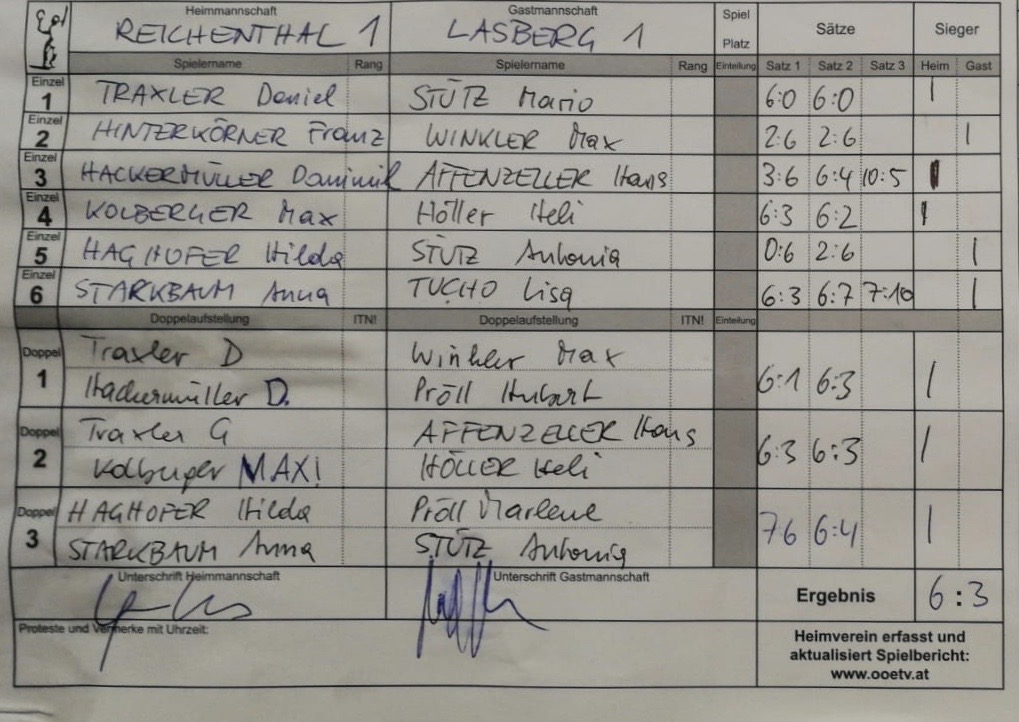 Heimmannschaft Gastmannschaft Spiel Platz Sätze Sieger
REICHENTHAL 1 LASBERG 1
Spielername Rang Spielername Rang Einteilung Satz 1 Satz 2 Satz 3 Heim Gast
Einzel 1 TRAXLER Daniel STÜTZ Mario 6:0 6:0 |
Einzel 2 HINTERKÖRNER Franz WINKLER Max 2:6 2:6 |
Einzel 3 HACKERMÜLLER Dominik AFFENZELLER Hans 3:6 6:4 10:5 |
Einzel 4 KOLBERGER Max Höller Heli 6:3 6:2 |
Einzel 5 HAGHOFER Hilda STÜTZ Antonia 0:6 2:6 |
Einzel 6 STARKBAUM Anna TUCHO Lisa 6:3 6:7 7:10 |
Doppelaufstellung ITN! Doppelaufstellung ITN! Einteilung
Doppel 1 Traxler D Winkler Max 6:1 6:3 |
Hackermüller D. Pröll Hubert
Doppel 2 Traxler G AFFENZELLER Hans 6:3 6:3 |
Kolberger MAXI HÖLLER Heli
Doppel 3 HAGHOFER Hilda Pröll Marlene 76 6:4 |
STARKBAUM Anna STÜTZ Antonia
Unterschrift Heimmannschaft Unterschrift Gastmannschaft Ergebnis 6:3
Proteste und Vermerke mit Uhrzeit:
Heimverein erfasst und
aktualisiert Spielbericht:
www.ooetv.at